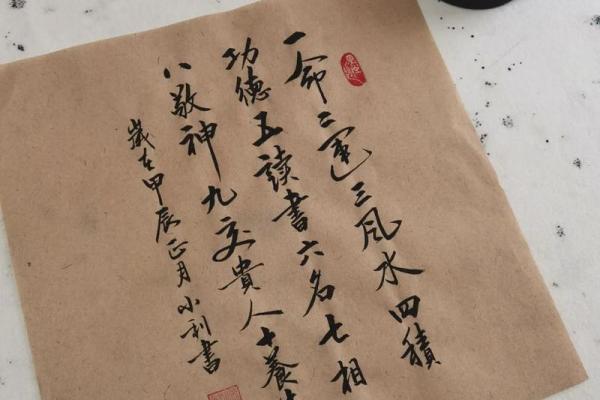 一命二運三風水四積
功德五讀書六名七相
八敬神九交貴人十養
歲在甲辰正月小利書